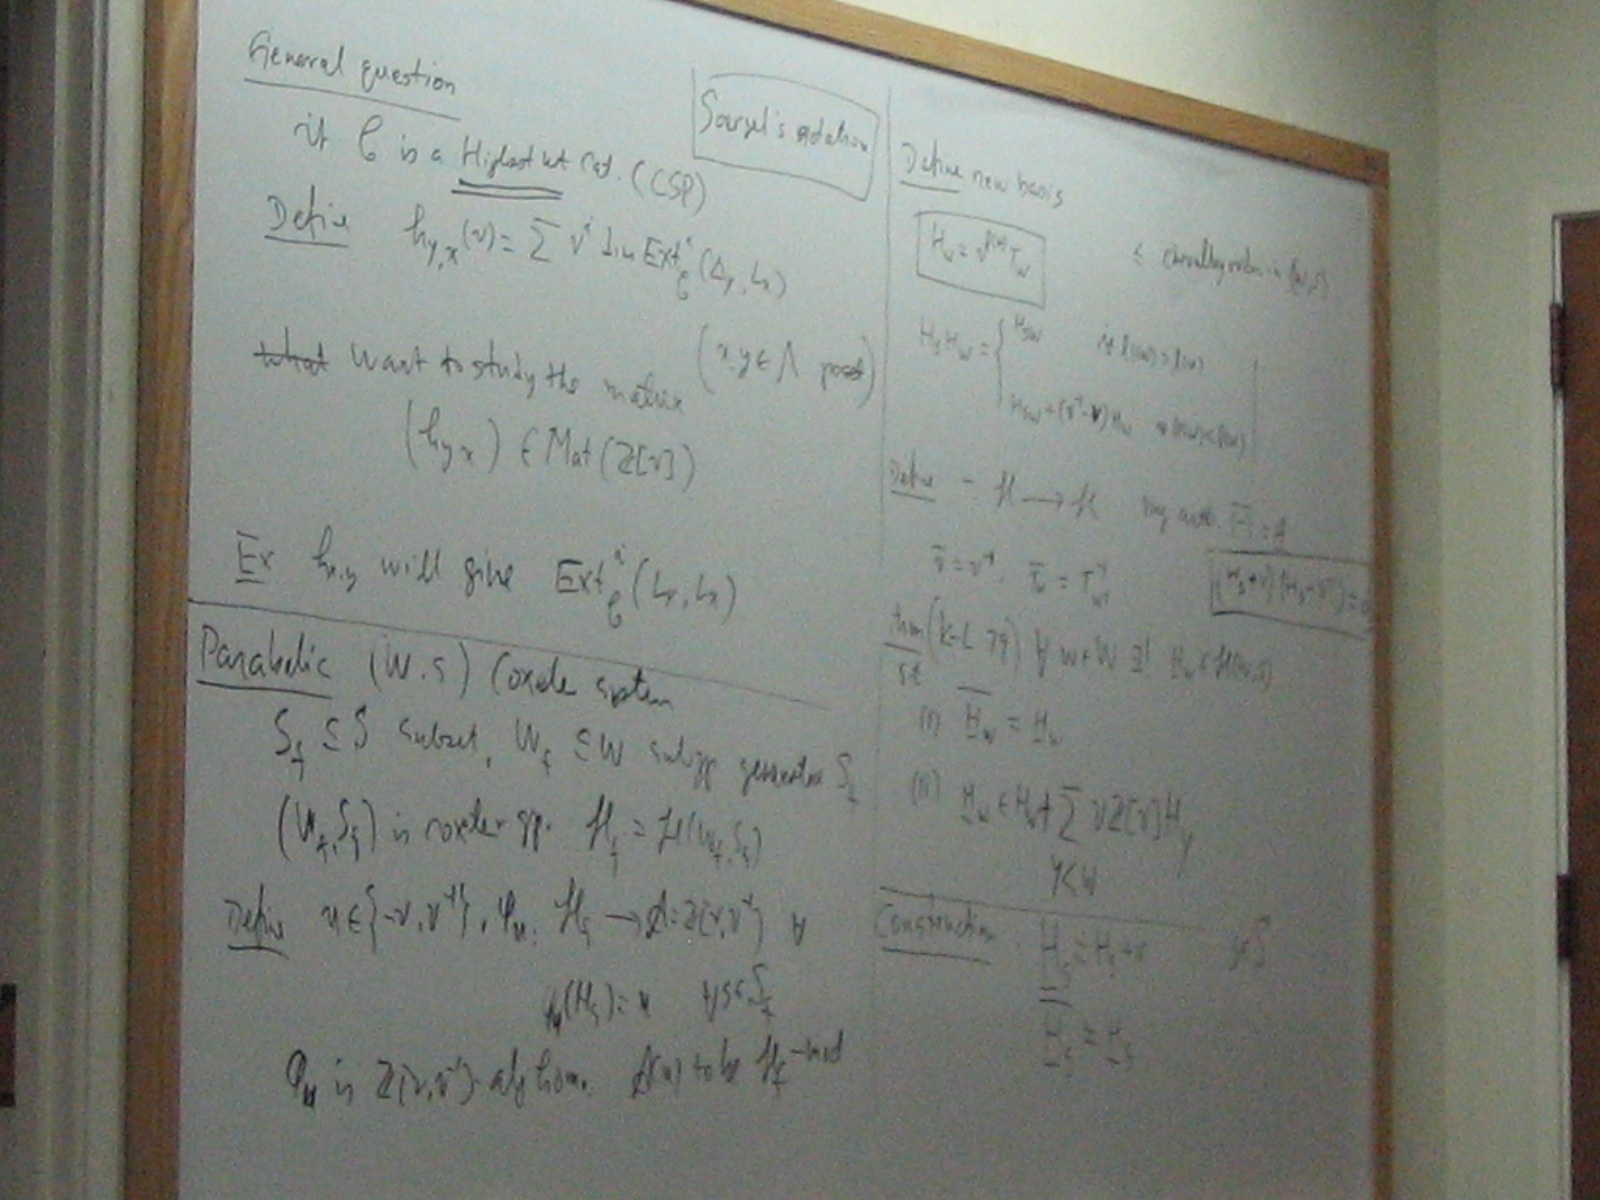 General question
if C is a Highest wt Cat. (CSP)
Define h_{y,x}(v) = Σ v^i dim Ext^i_C (Δ_y, L_x)
what want to study the matrix (x,y ∈ Λ poset)
(h_{y,x}) ∈ Mat(Z[v])
Ex h_{x,y} will give Ext^i_C (L_y, L_x)
Parabolic (W,S) Coxeter system
S_f ⊆ S subset, W_f ⊆ W subgp generated S_f
(W_f, S_f) is coxeter gp. H_f = H(W_f, S_f)
Define u ∈ {-v, v^{-1}}, φ_u: H_f → A = Z[v,v^{-1}]
φ_u(H_s) = u ∀s∈S_f
φ_u is Z[v,v^{-1}]-alg hom. A(u) to be H_f-mod
Soergel's notation
Define new basis
H_w = v^{l(w)} T_w
≤ Chevalley order in (W,S)
H_s H_w = { H_{sw} if l(sw) > l(w)
H_{sw} + (v^{-1} - v) H_w if l(sw) < l(w)
Define - : H → H ring auto.
v̄ = v^{-1},
(H_s + v)(H_s - v^{-1}) = 0
thm (K-L 79) ∀ w∈W ∃! H̲_w ∈ H(W,S)
s.t
(i) \overline{H̲_w} = H̲_w
(ii) H̲_w ∈ H_w + Σ v Z[v] H_y
y<w
Construction H̲_s = H_s + v s∈S
H̲_s = H̲_s